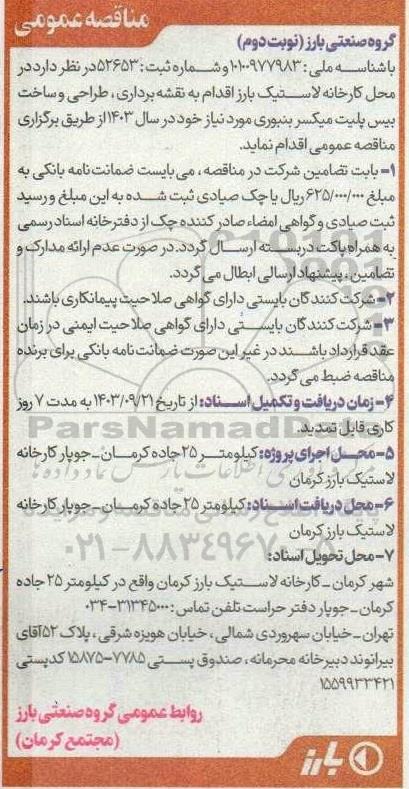 مناقصه عمومی
گروه صنعتی بارز (نوبت دوم)
با شناسه ملی : ۱۰۱۰۰۹۷۷۹۸۳ و شماره ثبت : ۵۲۶۵۳ در نظر دارد در
محل کارخانه لاستیک بارز اقدام به نقشه برداری ، طراحی و ساخت
بیس پلیت میکسر بنبوری مورد نیاز خود در سال ۱۴۰۳ از طریق برگزاری
مناقصه عمومی اقدام نماید.
۱- بابت تضامین شرکت در مناقصه ، می بایست ضمانت نامه بانکی به
مبلغ ۶۲۵/۰۰۰/۰۰۰ ریال یا چک صیادی ثبت شده به این مبلغ و رسید
ثبت صیادی و گواهی امضاء صادر کننده چک از دفترخانه اسناد رسمی
به همراه پاکت در بسته ارسال گردد. در صورت عدم ارائه مدارک و
تضامین ، پیشنهاد ارسالی ابطال می گردد.
۲- شرکت کنندگان بایستی دارای گواهی صلاحیت پیمانکاری باشند.
۳- شرکت کنندگان بایستی دارای گواهی صلاحیت ایمنی در زمان
عقد قرارداد باشند در غیر این صورت ضمانت نامه بانکی برای برنده
مناقصه ضبط می گردد.
۴- زمان دریافت و تکمیل اسناد: از تاریخ ۱۴۰۳/۰۹/۲۱ به مدت ۷ روز
کاری قابل تمدید.
ParsNamadData
۵- محل اجرای پروژه: کیلومتر ۲۵ جاده کرمان - جوپار کارخانه
لاستیک بارز کرمان
۶- محل دریافت اسناد: کیلومتر ۲۵ جاده کرمان - جوپار کارخانه
لاستیک بارز کرمان
۰۲۱-۸۸۳۴۹۶۷۰
۷- محل تحویل اسناد:
شهر کرمان - کارخانه لاستیک بارز کرمان واقع در کیلومتر ۲۵ جاده
کرمان - جوپار دفتر حراست تلفن تماس : ۰۳۴-۳۱۳۴۵۰۰۰
تهران - خیابان سهروردی شمالی ، خیابان هویزه شرقی ، پلاک ۵۲ آقای
بیرانوند دبیرخانه محرمانه ، صندوق پستی ۷۷۸۵-۱۵۸۷۵ کدپستی
۱۵۵۹۹۳۳۴۲۱
روابط عمومی گروه صنعتی بارز
(مجتمع کرمان)
بارز